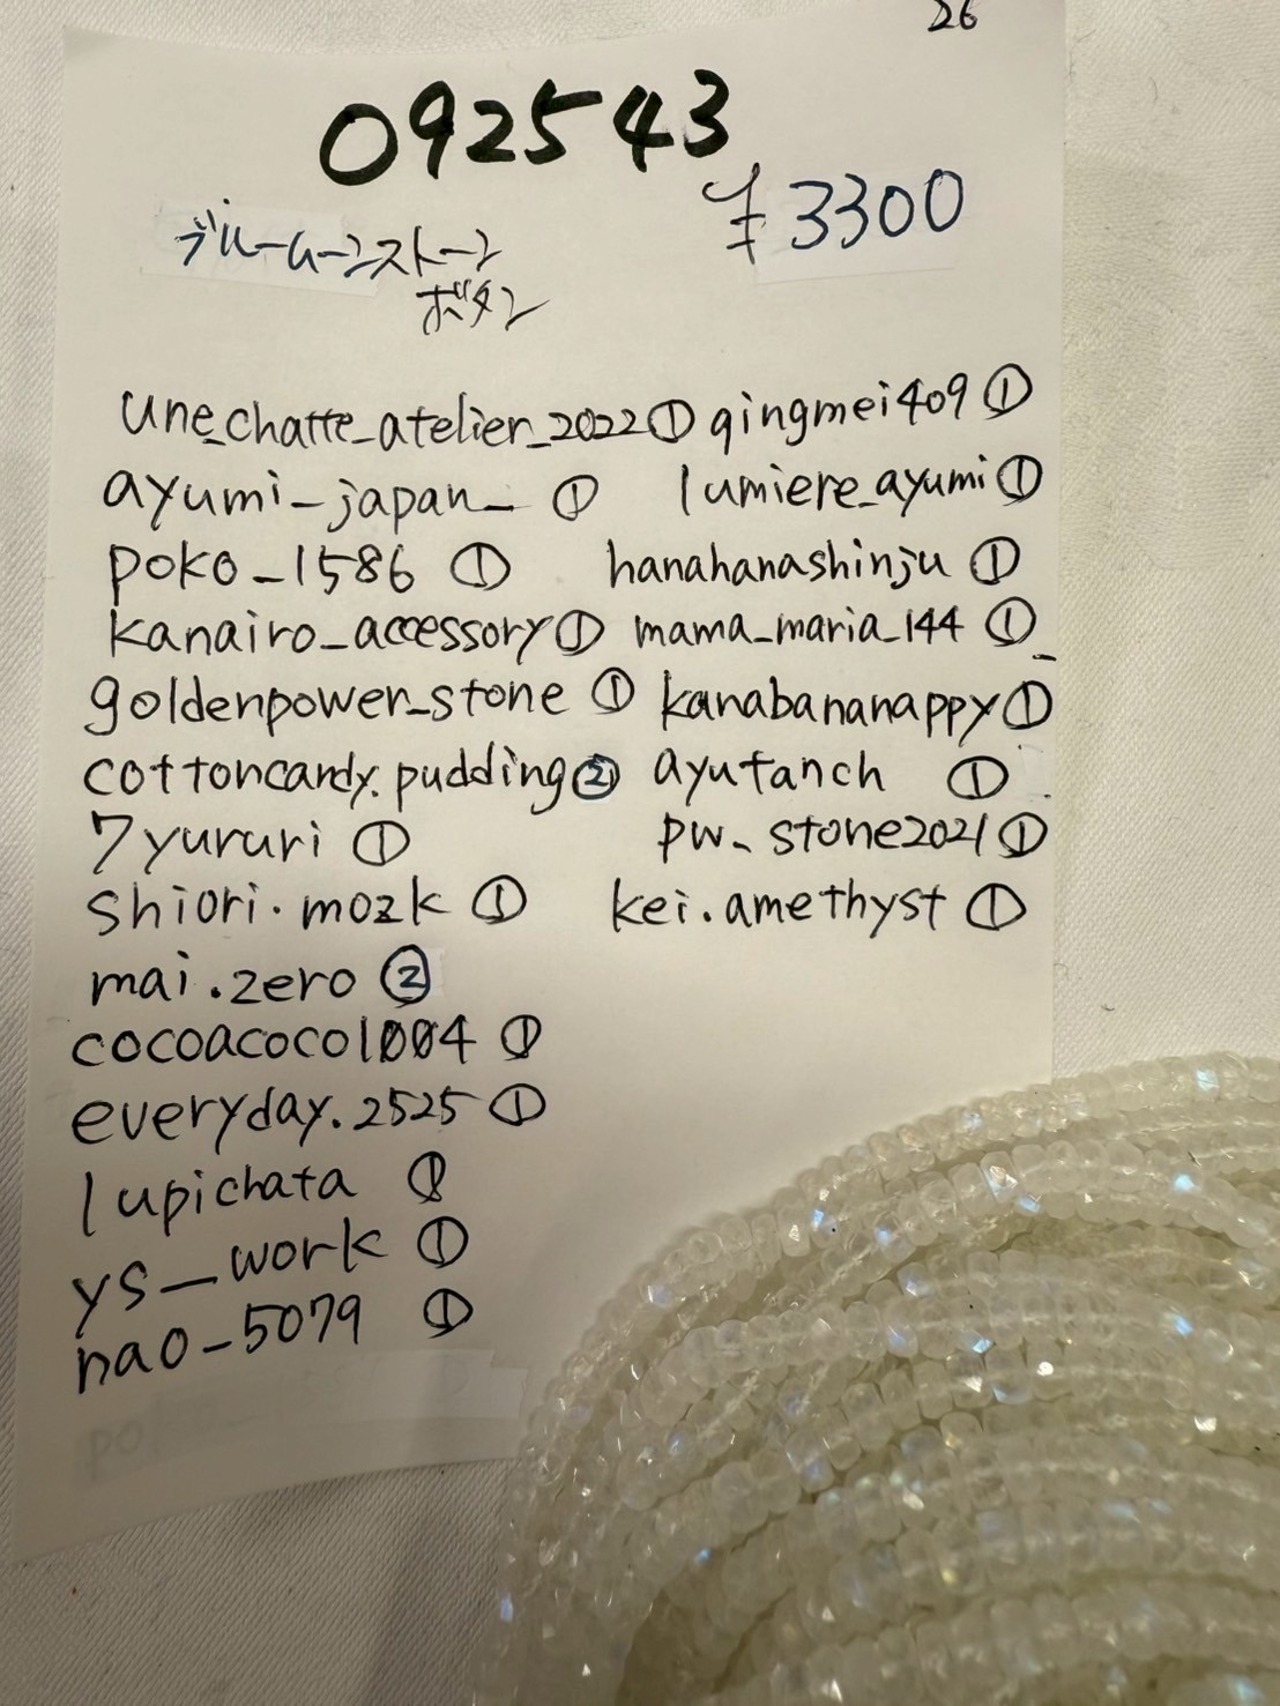 26
092543
¥3300
ブルームーンストーン
ボタン
une_chatte_atelier_2022① qingmei409①
ayumi_japan_ ① lumiere_ayumi①
poko_1586 ① hanahanashinju ①
kanairo_accessory① mama_maria_144 ①_
goldenpower_stone ① kanabananappy①
cottoncandy.pudding② ayutanch ①
7yururi ① pw_stone2021①
shiori.mozk ① kei.amethyst ①
mai.zero ②
cocoacoco1004 ①
everyday.2525 ①
lupichata ①
ys__work ①
nao_5079 ①